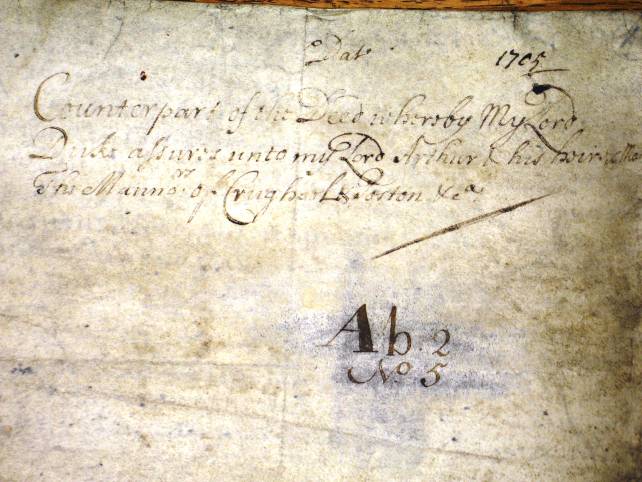 Dat 1705
Counterpart of the Deed whereby My Lord
Duke assures unto my Lord Arthur & his heirs
The Mannors of Crughoel & Toston &ca
Ab. 2
No. 5